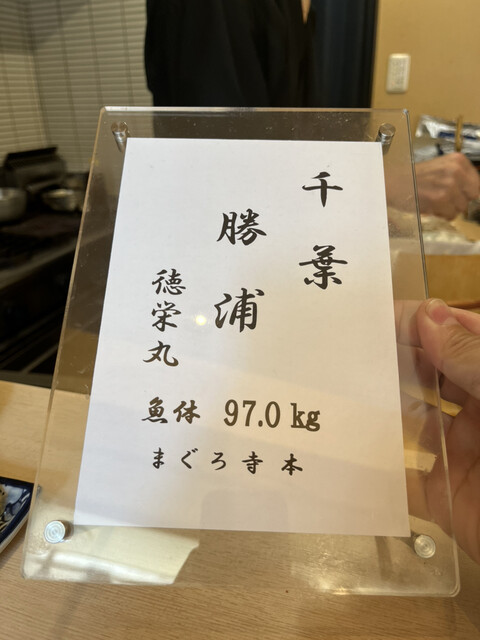 千葉
勝浦
徳栄丸
魚体 97.0 kg
まぐろ寺本